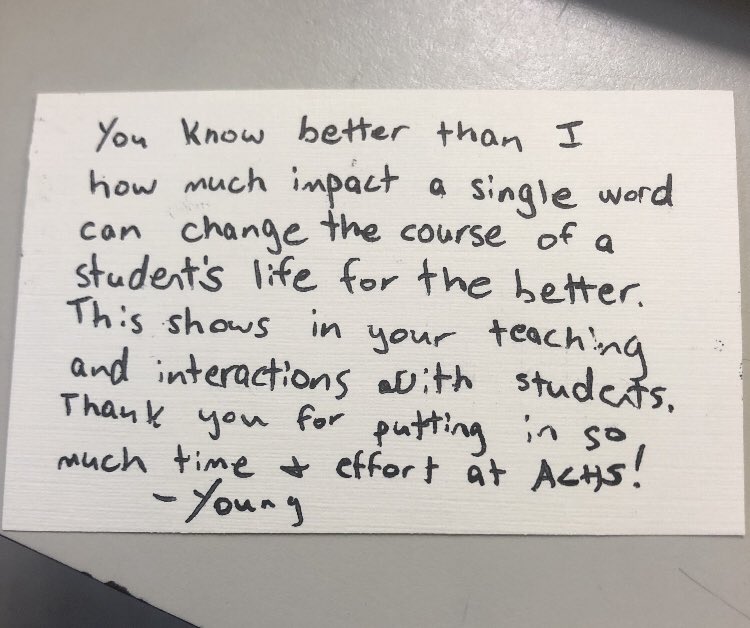 You know better than I
how much impact a single word
can change the course of a
student's life for the better.
This shows in your teaching
and interactions with students.
Thank you for putting in so
much time & effort at ACHS!
- Young